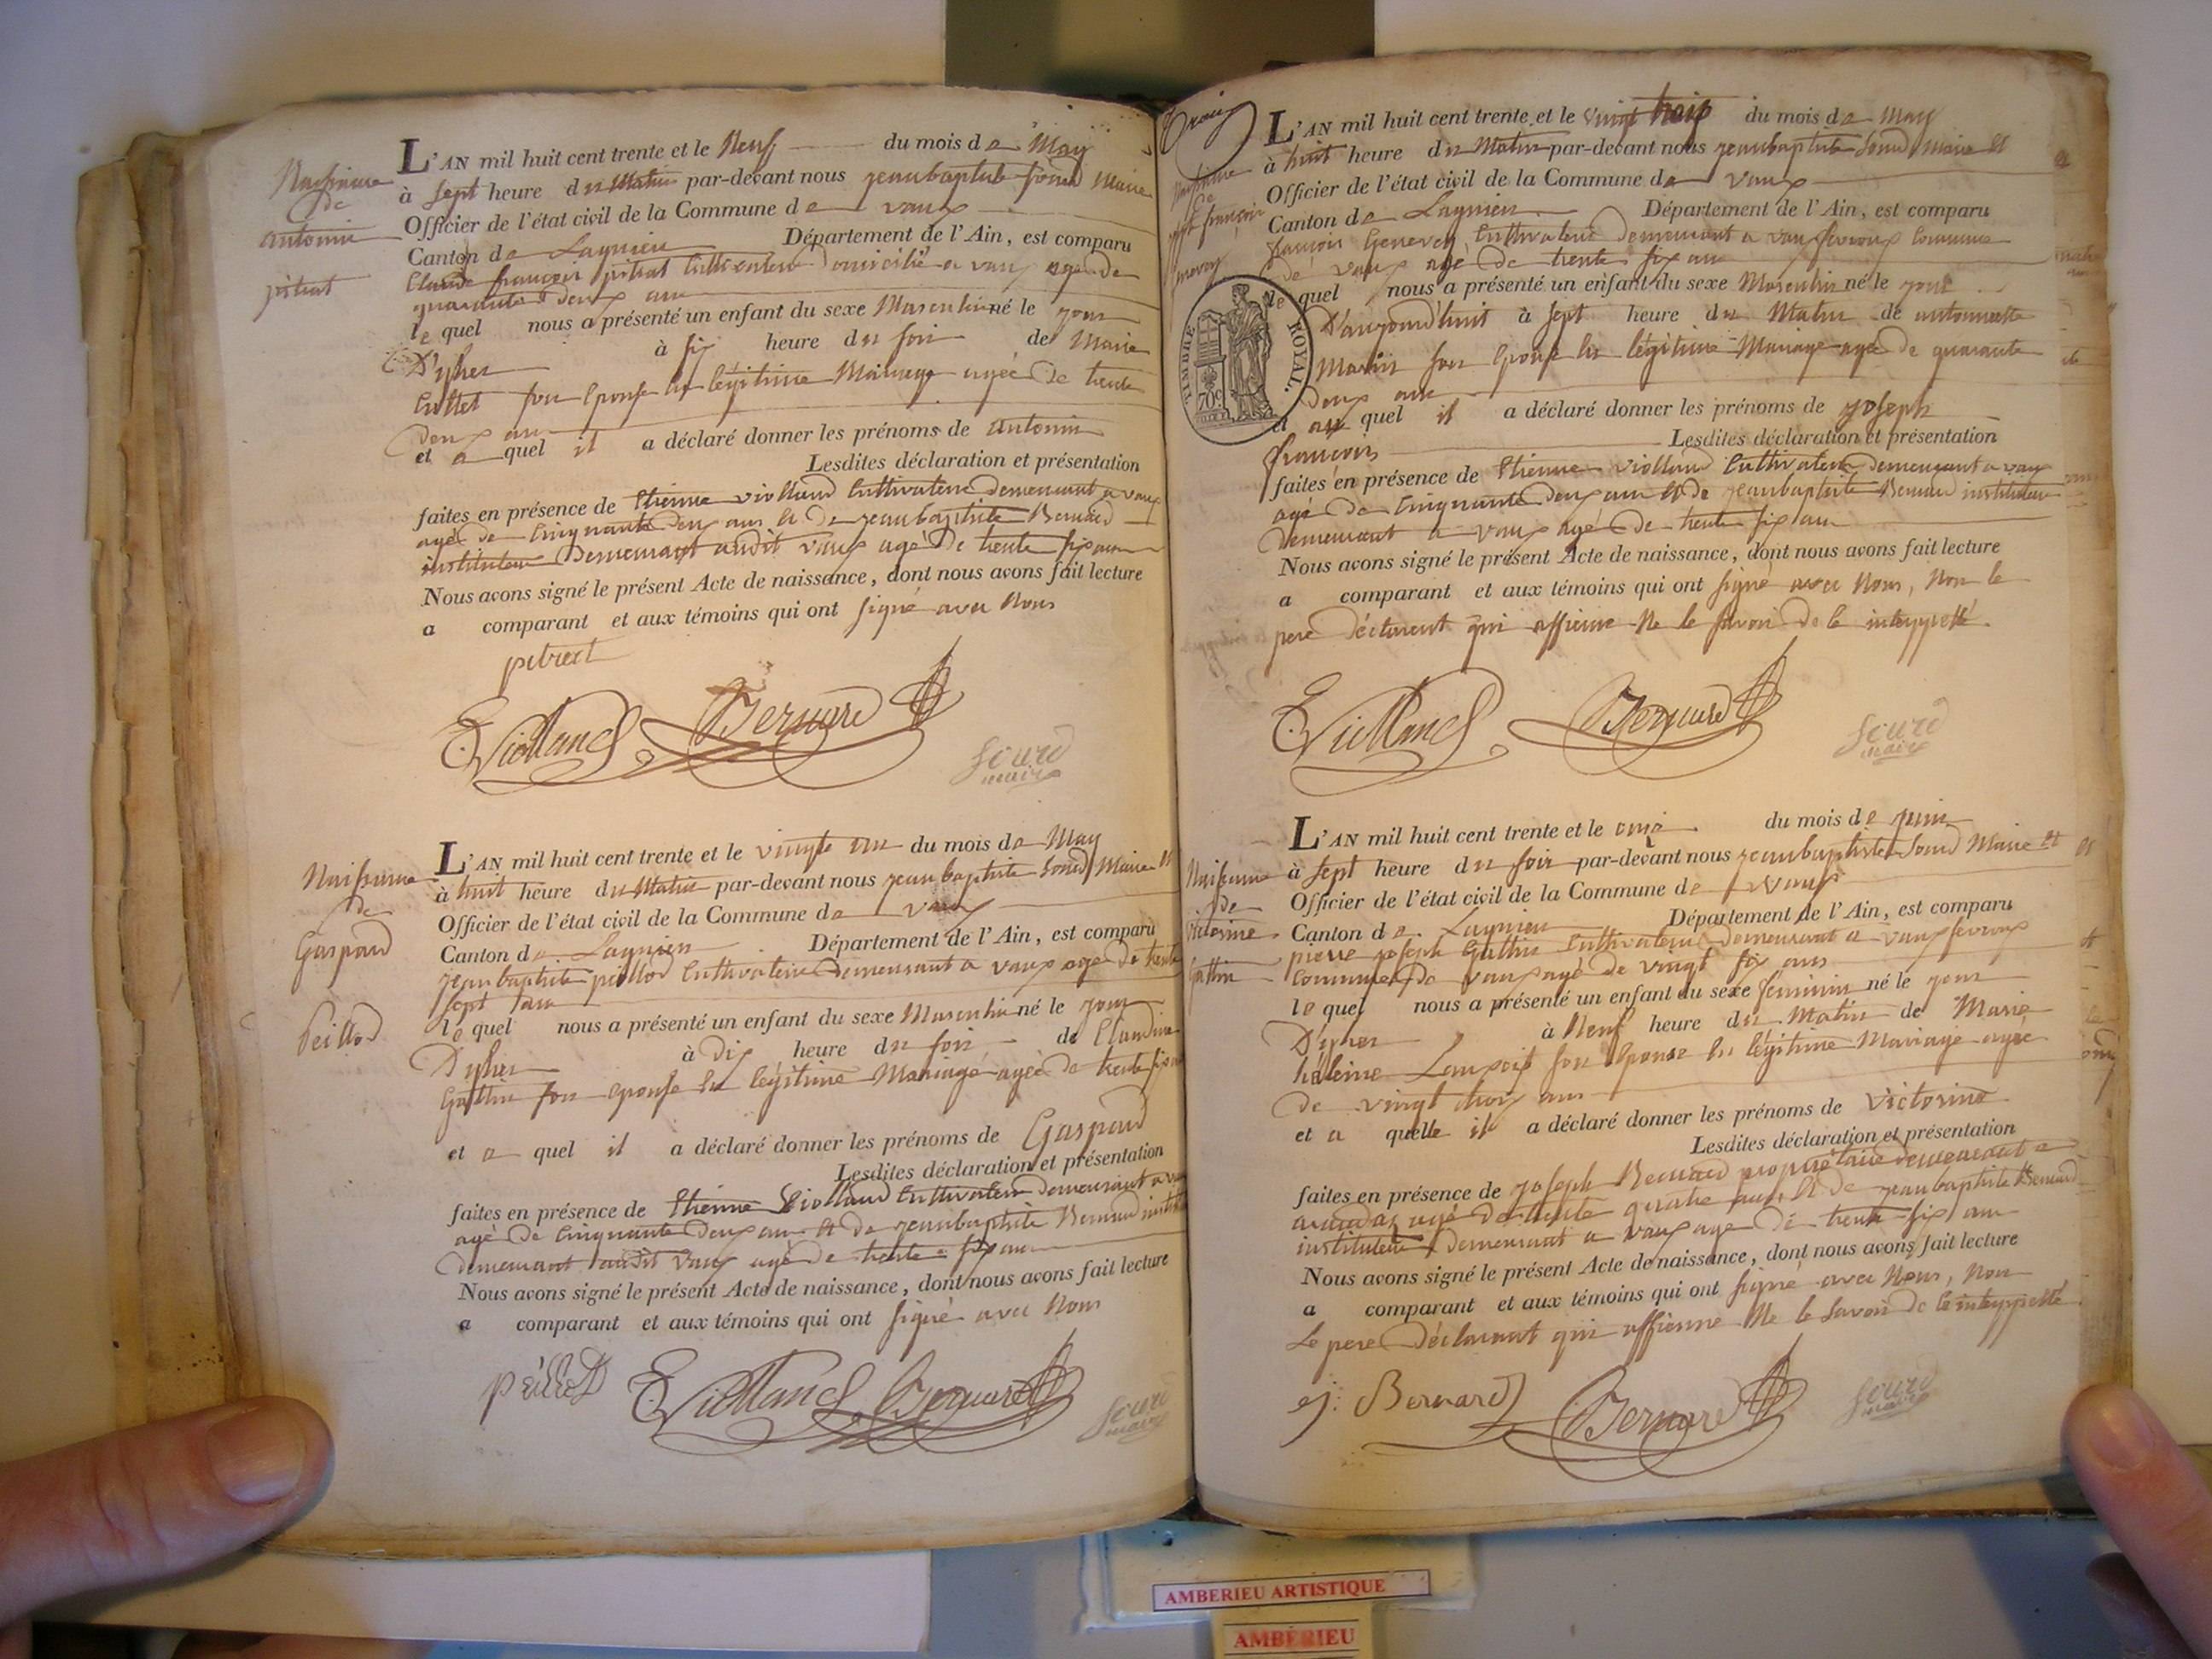 Naissance
de
antonin
pitrat
L'AN mil huit cent trente et le Neuf du mois de May
à sept heure du Matin par-devant nous jeanbaptiste Sourd Maire
Officier de l'état civil de la Commune de vaux
Canton de Lagnieu Département de l'Ain, est comparu
Claude françois pitrat Cultivateur domicilié a vaux agé de
quarante deux ans
le quel nous a présenté un enfant du sexe Masculin né le jour
D'yher à six heure du soir de Marie
Cullet son Epouse en légitime Mariage agée de trente
deux ans
et a quel il a déclaré donner les prénoms de antonin
Lesdites déclaration et présentation
faites en présence de Etienne violland Cultivateur demeurant a vaux
agé de Cinquante deux ans et de jeanbaptiste Bernard
instituteur Demeurant audit vaux agé de trente six ans
Nous avons signé le présent Acte de naissance, dont nous avons fait lecture
a comparant et aux témoins qui ont signé avec Nous
pitrat
E. Violland Bernard Sourd
maire
Naissance
de
Gaspard
Peillod
L'AN mil huit cent trente et le vingte un du mois de May
à huit heure du Matin par-devant nous jeanbaptiste Sourd Maire et
Officier de l'état civil de la Commune de vaux
Canton de Lagnieu Département de l'Ain, est comparu
jeanbaptiste peillod Cultivateur demeurant a vaux agé de trente
sept ans
le quel nous a présenté un enfant du sexe Masculin né le jour
D'yher à dix heure du soir de Claudine
Guttin son epouse en légitime Mariage agée de trente six ans
et a quel il a déclaré donner les prénoms de Gaspard
Lesdites déclaration et présentation
faites en présence de Etienne Violland Cultivateur demeurant a
agé de Cinquante deux ans et de jeanbaptiste Bernard
demeurant audit vaux agé de trente six ans
Nous avons signé le présent Acte de naissance, dont nous avons fait lecture
a comparant et aux témoins qui ont signé avec Nous
peillod E. Violland Bernard Sourd
maire
Naissance
de
françois
L'AN mil huit cent trente et le vingt trois du mois de May
à huit heure du Matin par-devant nous jeanbaptiste Sourd Maire et
Officier de l'état civil de la Commune de vaux
Canton de Lagnieu Département de l'Ain, est comparu
françois Genevey Cultivateur demeurant a vaux fevroux Commune
de vaux agé de trente six ans
le quel nous a présenté un enfant du sexe Masculin né le jour
D'aujourd'huit à sept heure du Matin de antoinette
Marin son Epouse en légitime Mariage agée de quarante
deux ans
et au quel il a déclaré donner les prénoms de joseph
françois Lesdites déclaration et présentation
faites en présence de Etienne violland Cultivateur demeurant a vaux
agé de Cinquante deux ans et de jeanbaptiste Bernard instituteur
demeurant a vaux agé de trente six ans
Nous avons signé le présent Acte de naissance, dont nous avons fait lecture
a comparant et aux témoins qui ont signé avec Nous, Non le
pere déclarent qui affirme Ne le savoir de ce interppellé.
TIMBRE ROYAL.
70c
E. Violland Bernard Sourd
maire
Naissance
de
Victorine
Guttin
L'AN mil huit cent trente et le onze du mois de juin
à sept heure du soir par-devant nous jeanbaptiste Sourd Maire et
Officier de l'état civil de la Commune de vaux
Canton de Lagnieu Département de l'Ain, est comparu
pierre joseph Guttin Cultivateur demeurant a vaux fevroux
Commune de vaux agé de vingt six ans
le quel nous a présenté un enfant du sexe feminin né le jour
D'yher à Neuf heure du Matin de Marie
héleine son Epouse en légitime Mariage agée
de vingt ans
et a quelle il a déclaré donner les prénoms de Victorine
Lesdites déclaration et présentation
faites en présence de joseph Bernard propriétaire demeurant a
agé de trente quatre ans, et de jeanbaptiste Bernard
instituteur demeurant a vaux agé de trente six ans
Nous avons signé le présent Acte de naissance, dont nous avons fait lecture
a comparant et aux témoins qui ont signé avec Nous, Non
Le pere déclarant qui affirme Ne le Savoir de ce interppellé.
j. Bernard Bernard Sourd
maire
AMBERIEU ARTISTIQUE
AMBERIEU